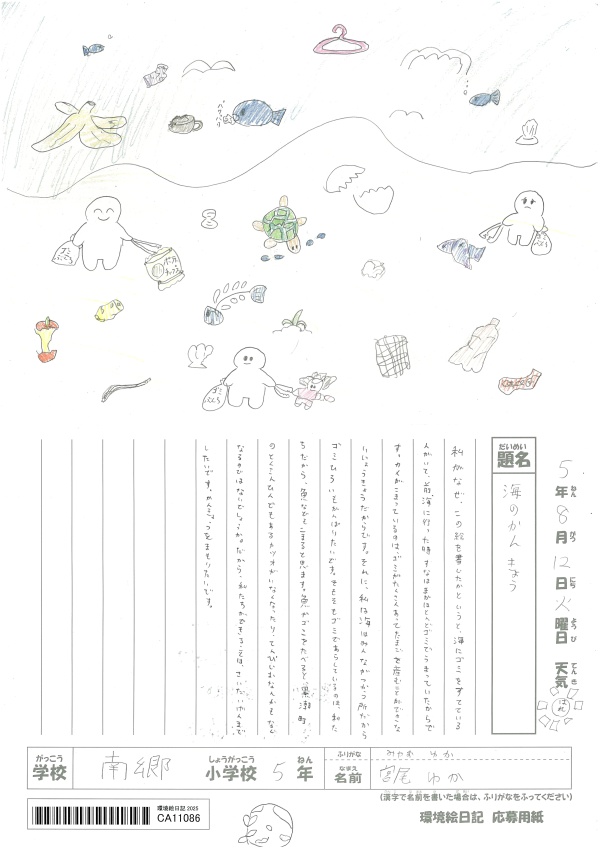 パクパク
ゴミぶくろ
ポテトチップス
ゴミぶくろ
ゴミぶくろ
5年8月12日火曜日 天気 はれ
ねん がつ にち ようび てんき
だいめい
題名 海のかんきょう
私がなぜ、この絵を書したかというと、海にゴミをすてている
人がいて、前海に行った時すなはまがほとんどゴミでうまっていたからで
す。カメがこまっているのは、ゴミがたくさんあってたまごを産むことができな
いじょうきょうだからです。それに、私は海はみんながつかう所だから
ゴミひろいをがんばりたいです。そもそもゴミであらしているのは、私た
ちだから、魚などもこまると思います。魚がゴミをたべると、黒潮町
のとくさんひんでもあるカツオがいなくなったり、てんぴじおなんかもなく
なるのではないでしょうか。だから、私たちができることは、さいだいげんまで
したいです。かんきょうをまもりたいです。
がっこう しょうがっこう ねん ふりがな みやお ゆか
学校 南郷 小学校 5年 なまえ 名前 宮尾 ゆか
(漢字で名前を書いた場合は、ふりがなをふってください)
環境絵日記 2025
CA11086
環境絵日記 応募用紙